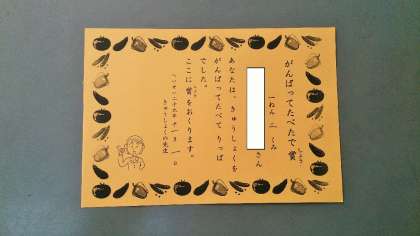 がんばってたべたで賞
しょう
一ねん 二 くみ
さん
あなたは、きゅうしょくを
がんばってたべて りっぱ
でした。
ここに 賞をおくります。
しょう
へいせい二十九年 十一月 一日
きゅうしょくの先生